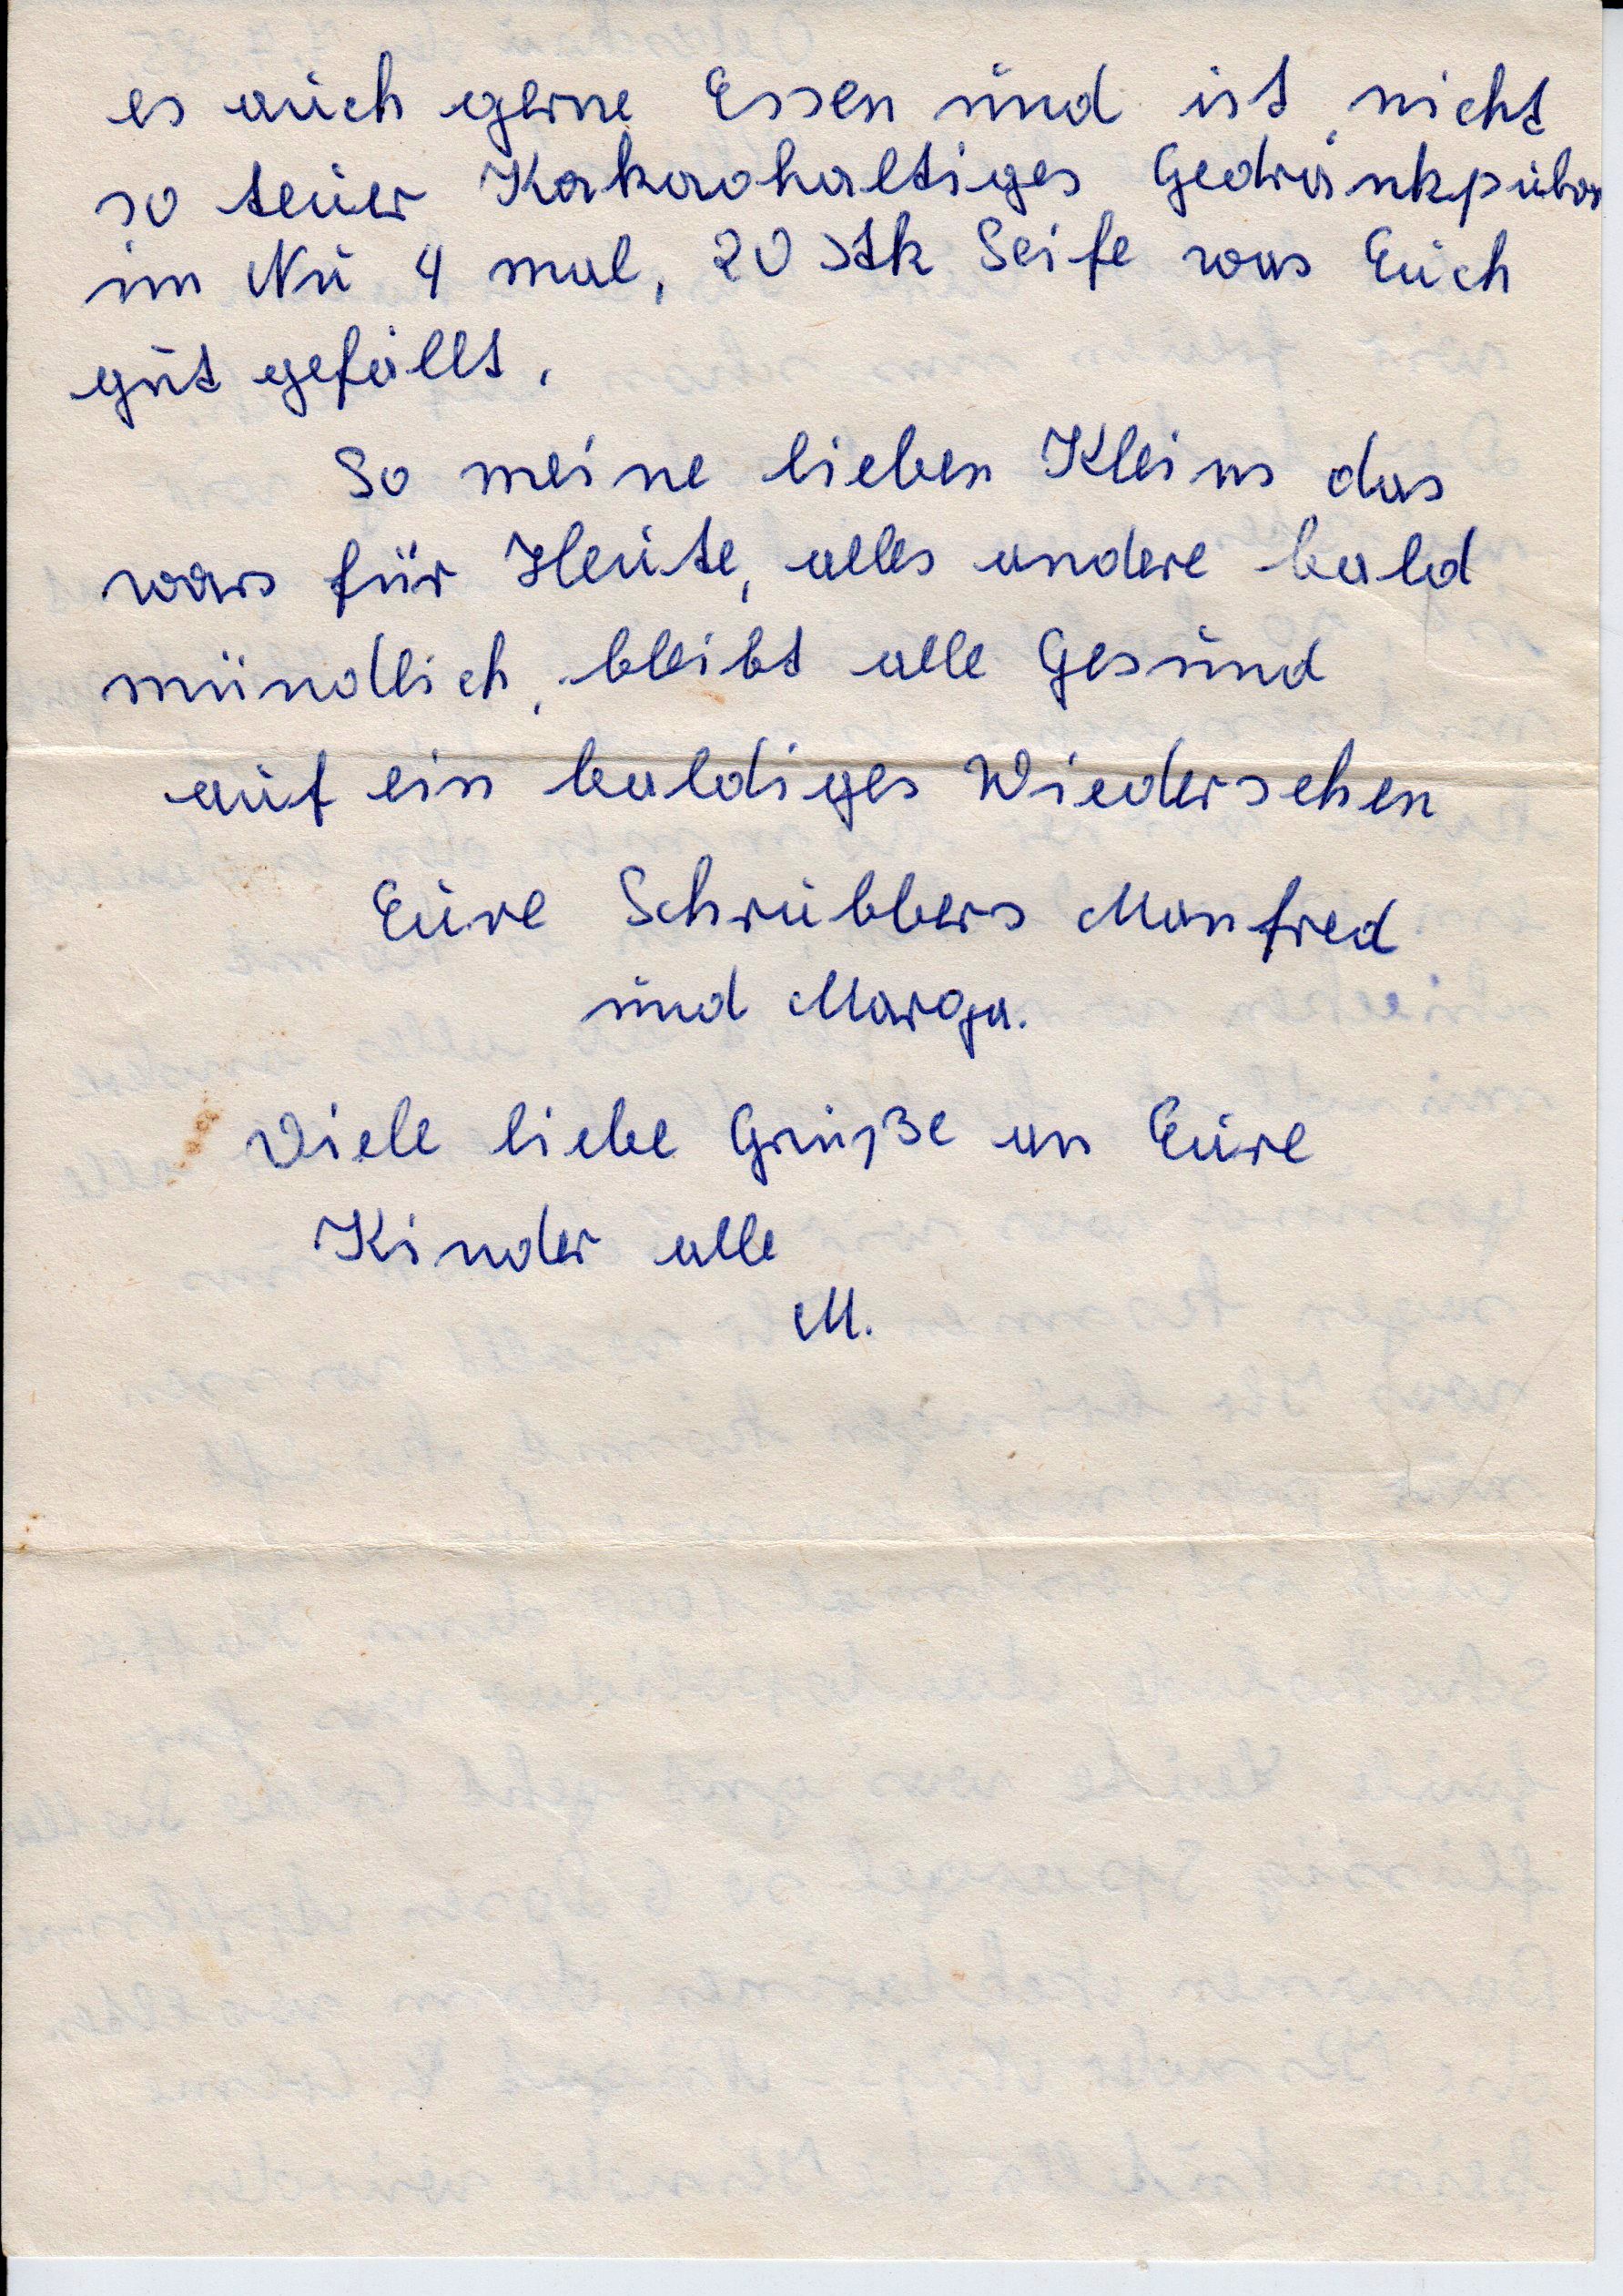 es auch gerne Essen und ist nicht
so teuer Kakaohaltiges Gedränkpulver
im Nu 4 mal, 20 Stk Seife was Euch
gut gefällt.
So meine lieben Kleins das
wars für Heute, alles andere bald
mündlich, bleibt alle Gesund
auf ein baldiges Wiedersehen
Eure Schrubbers Manfred
und Marga.
Viele liebe Grüße an Eure
Kinder alle
M.